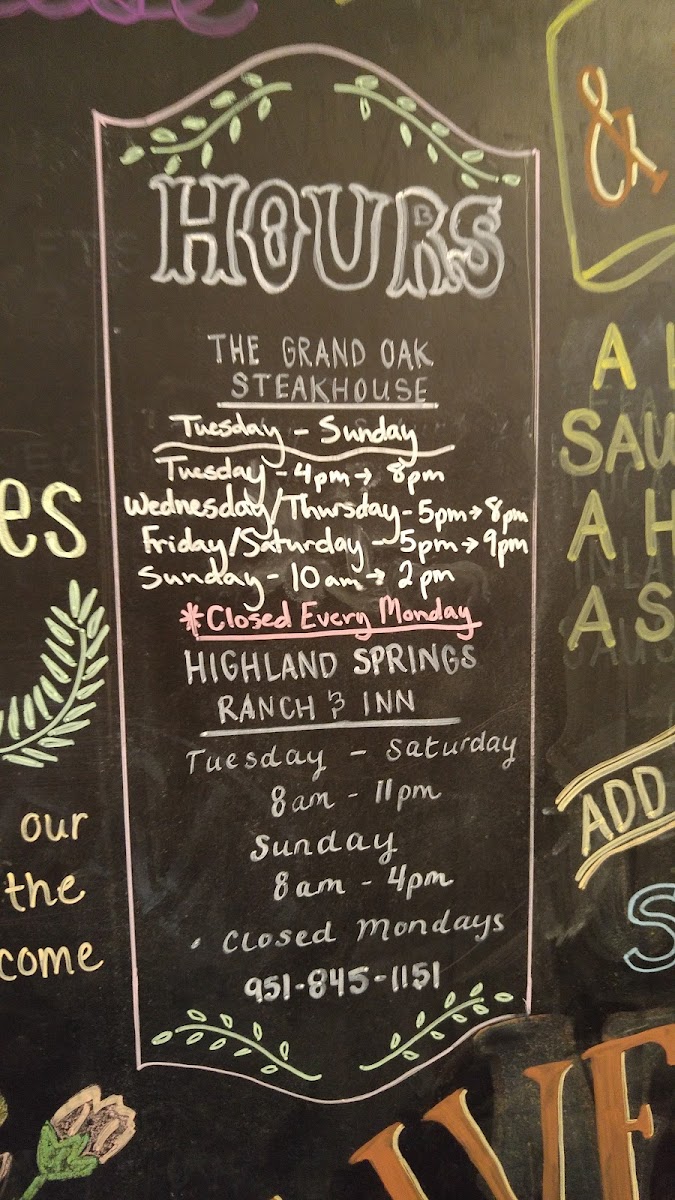 HOURS
THE GRAND OAK
STEAKHOUSE
Tuesday - Sunday
Tuesday - 4pm → 8pm
Wednesday/Thursday - 5pm → 8pm
Friday/Saturday - 5pm → 9pm
Sunday - 10am → 2pm
*Closed Every Monday
HIGHLAND SPRINGS
RANCH & INN
Tuesday - Saturday
8am - 11pm
Sunday
8am - 4pm
• Closed Mondays
951-845-1151
es
our
the
come
&
A
SAU
A H
A S
ADD
S